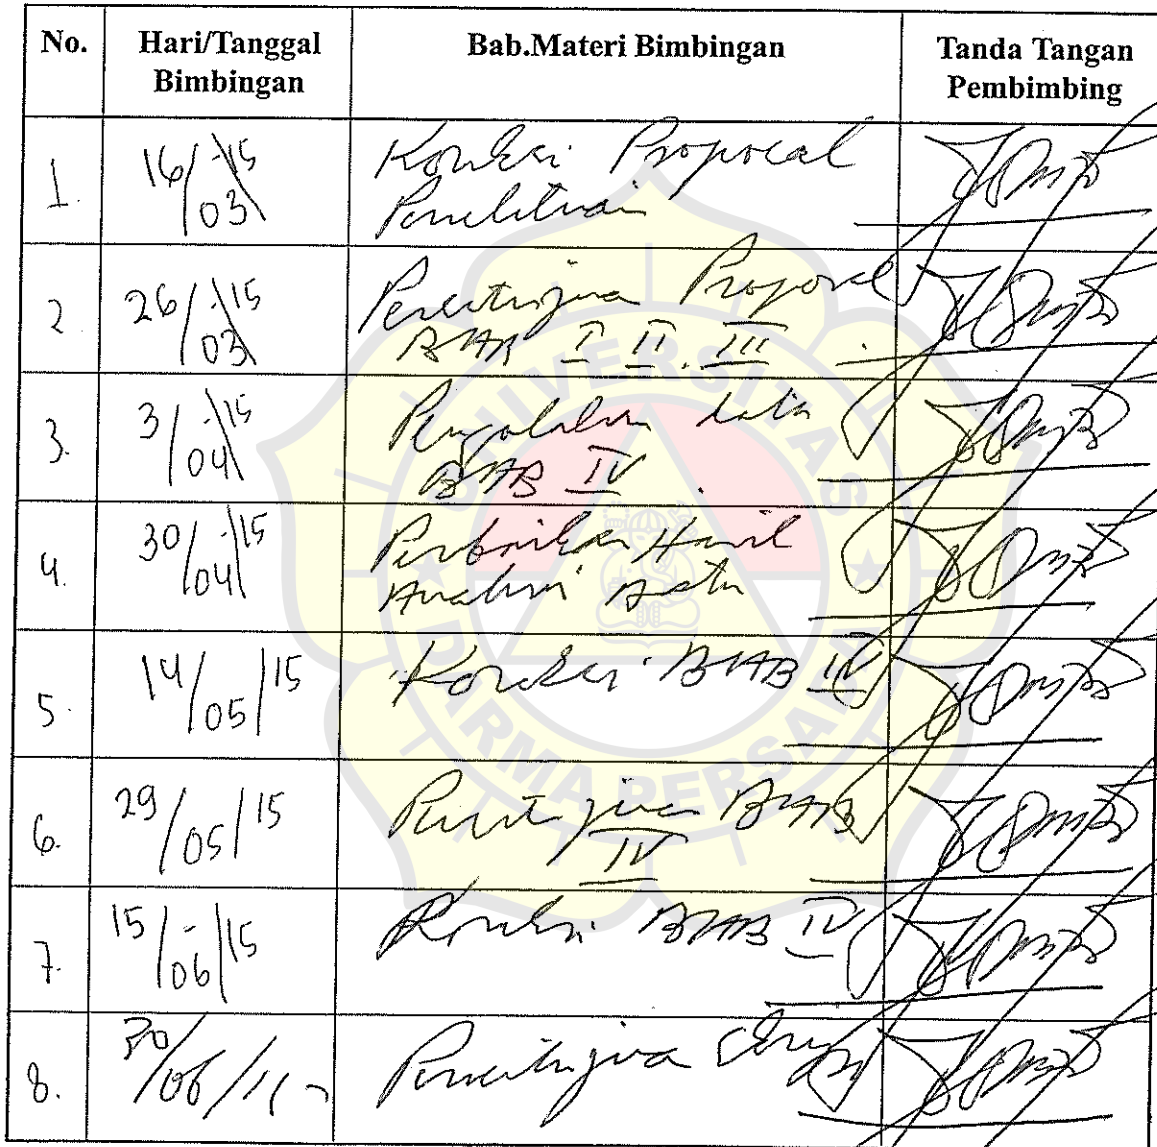 No. Hari/Tanggal Bimbingan Bab.Materi Bimbingan Tanda Tangan Pembimbing
1. 16/03-15 Koreksi Proposal
Penelitian
2. 26/03-15 Persetujuan Proposal
BAB I II. III
3. 3/04-15 Pengolahan data
BAB IV
4. 30/04-15 Perbaikan Hasil
Analisis Data
5. 14/05/15 Koreksi BAB IV
6. 29/05/15 Persetujuan BAB
IV
7. 15/06/15 Koreksi BAB IV
8. 30/06/15 Persetujuan
UNIVERSITAS
DARMA PERSADA